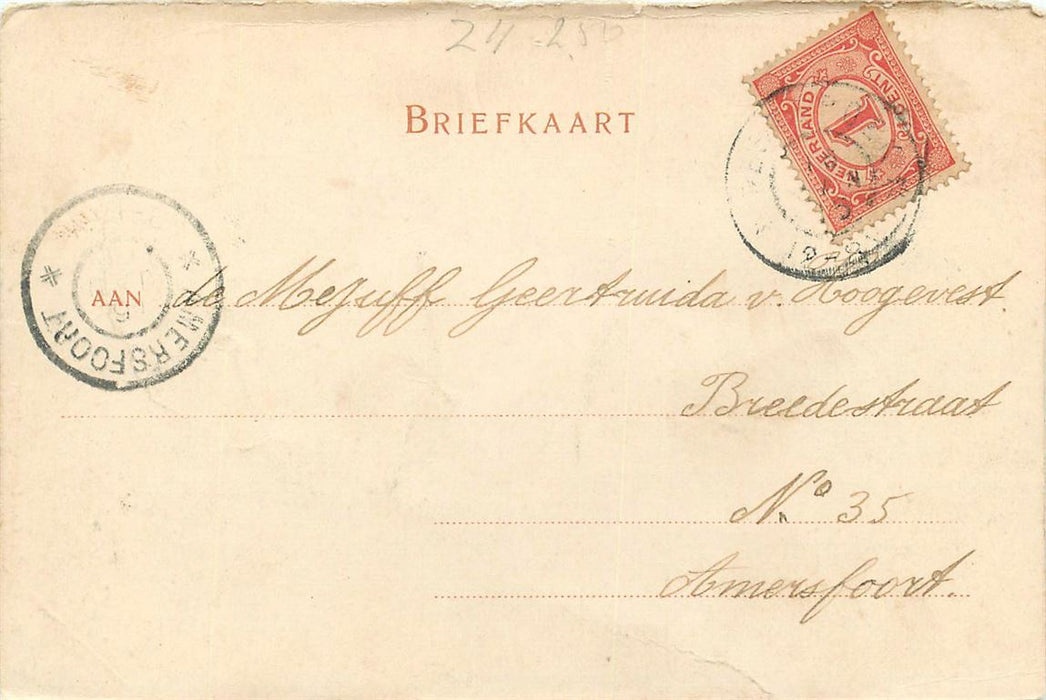 24 250
BRIEFKAART
NEDERLAND
1
CENT
AAN de Mejuff Geertruida v. Hoogevest
AMERSFOORT
Breedestraat
No 35
Amersfoort.